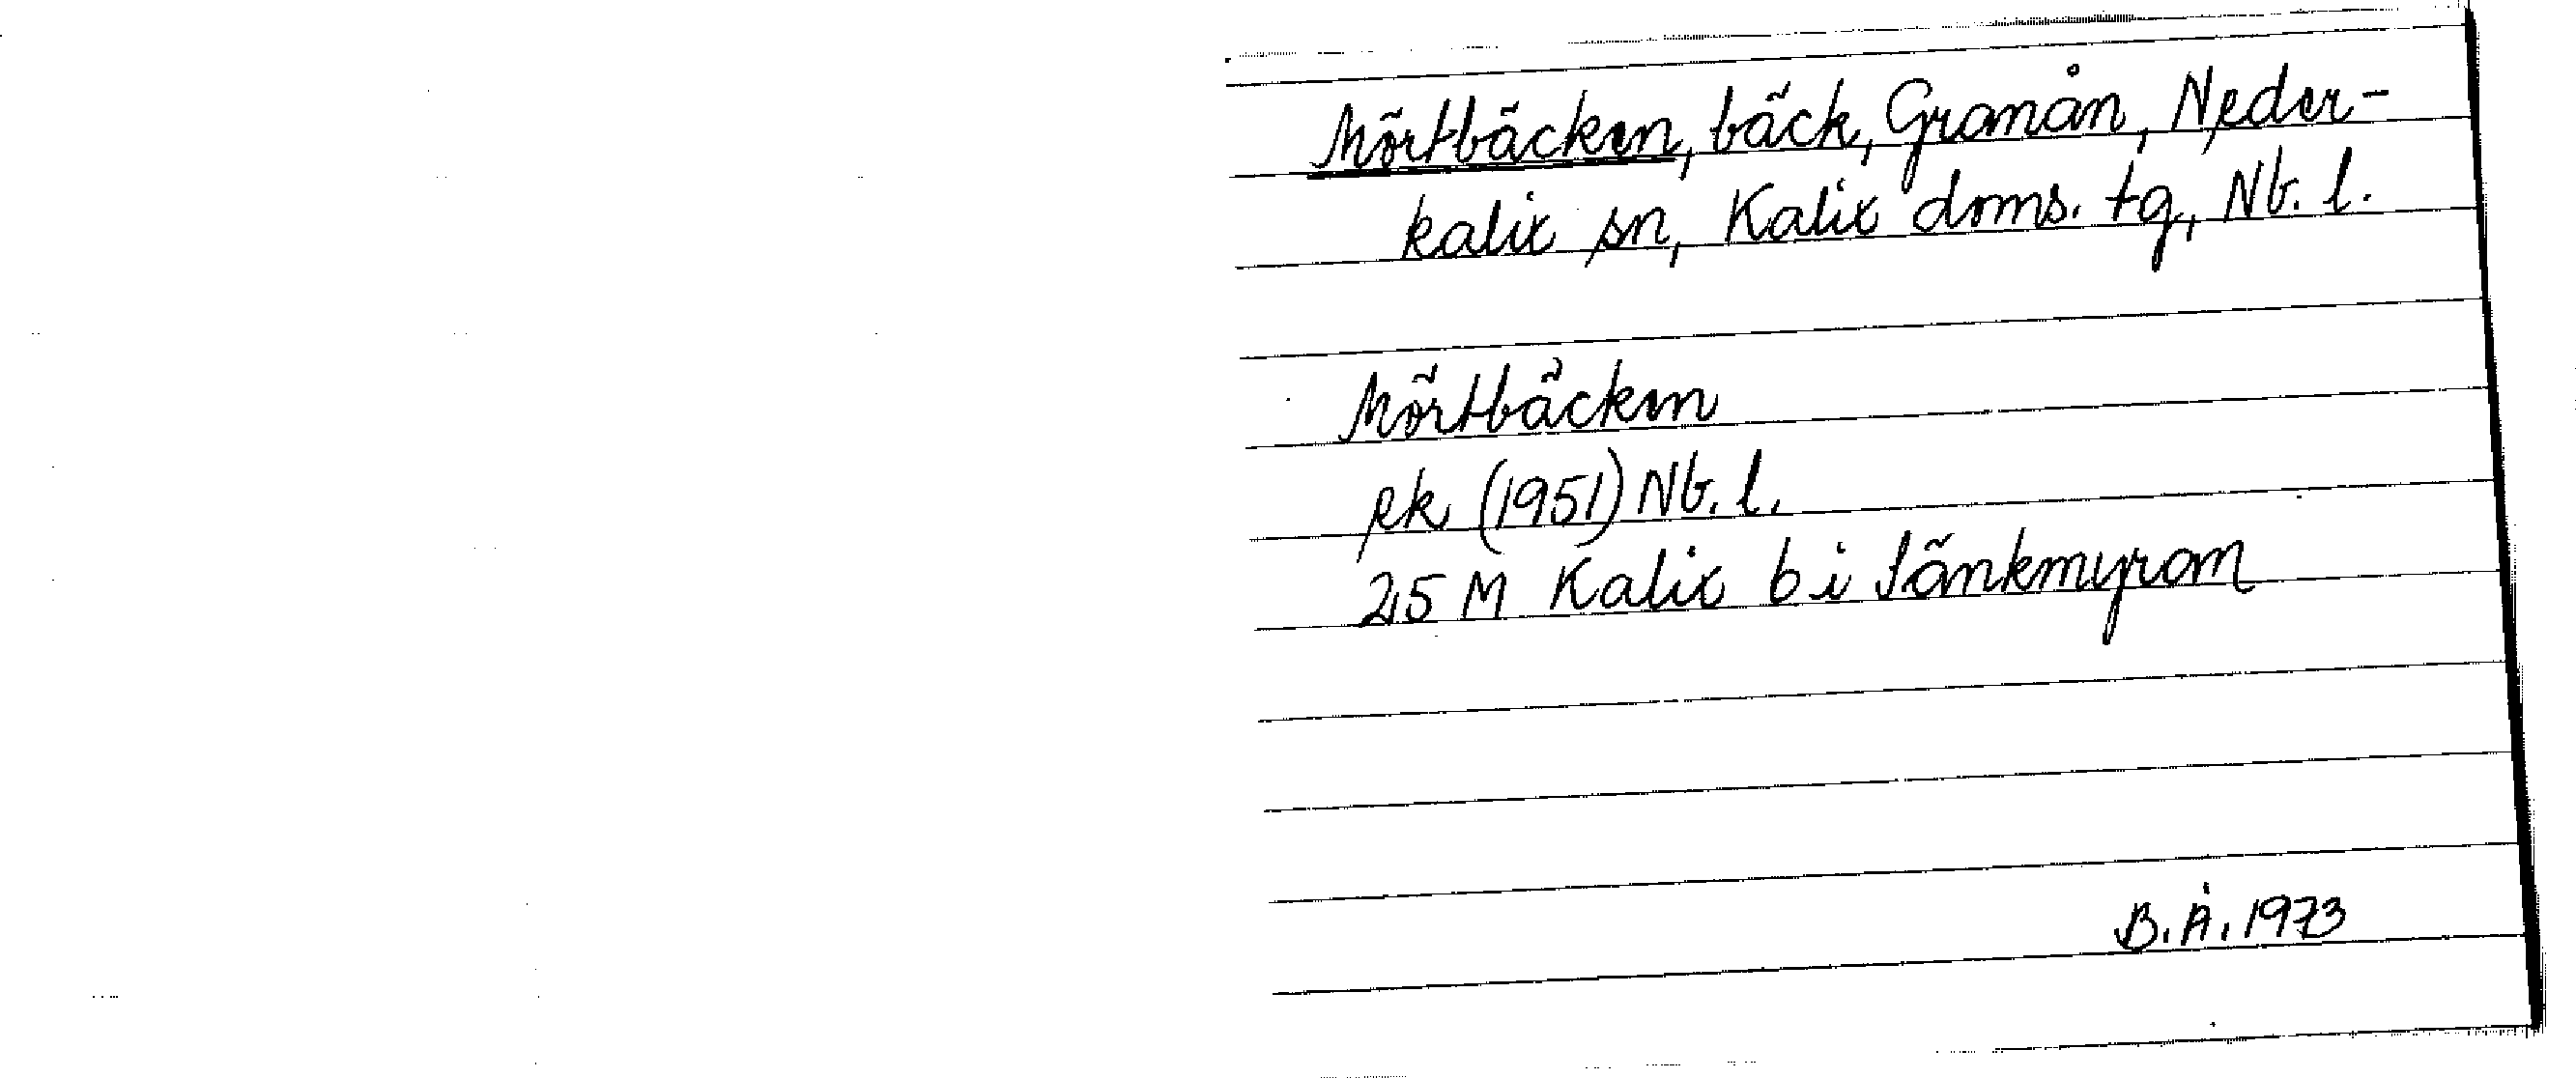 Mörtbäcken, bäck, Granån, Neder-
kalix sn, Kalix doms. tg, Nb. l.
Mörtbäcken
ek (1951) Nb. l.
25 M Kalix b i Sänkmyran
B.Å. 1973